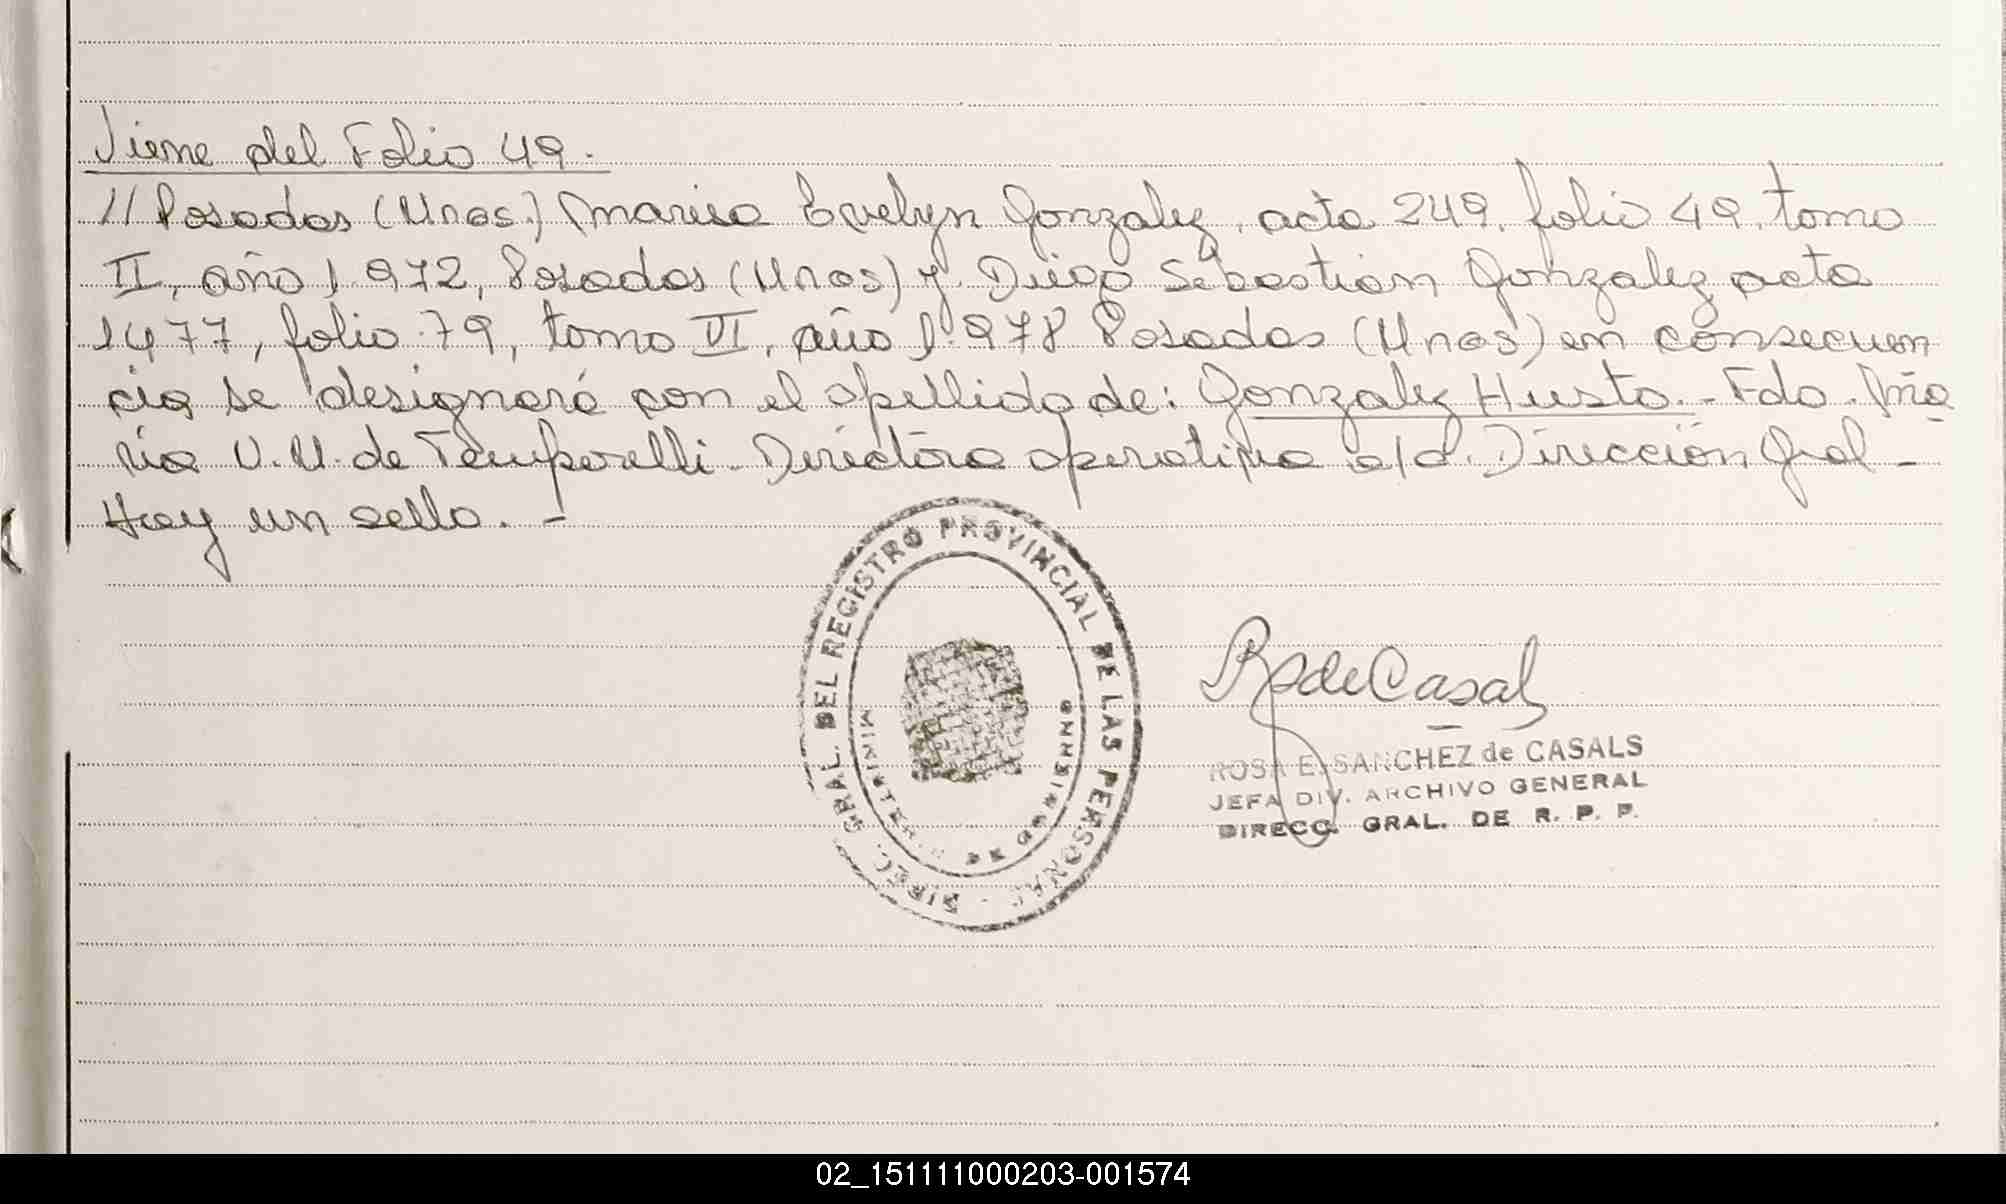 Viene del Folio 49.
// Posadas (Mnes.) Marisa Evelyn Gonzalez, acta 249, folio 49, tomo
II, año 1.972, Posadas (Mnes) y Diego Sebastian Gonzalez acta
1477, folio 79, tomo VI, año 1.978 Posadas (Mnes) en consecuen
cia se designará con el apellido de: Gonzalez Husto.- Fdo. Ma
ria V.M. de Temporelli - Directora operativa a/c. Dirección Gral -
Hay un sello. -
DIREC. GRAL. DEL REGISTRO PROVINCIAL DE LAS PERSONAS -
MINISTERIO DE GOBIERNO
RSdeCasals
ROSA E. SANCHEZ de CASALS
JEFA DIV. ARCHIVO GENERAL
DIRECC. GRAL. DE R. P. P.
02_151111000203-001574